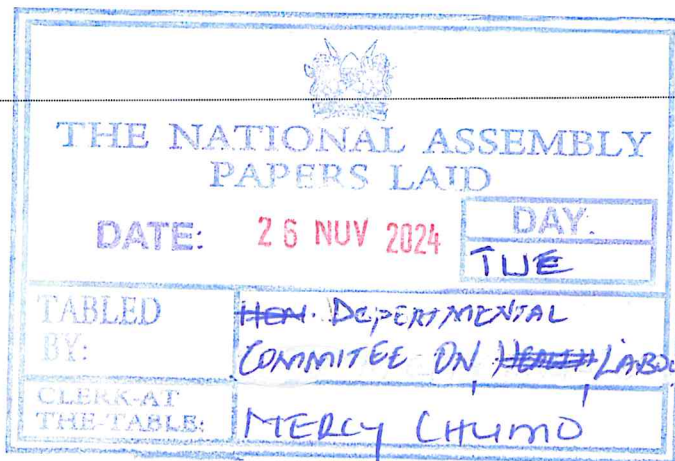 THE NATIONAL ASSEMBLY
PAPERS LAID
DATE: 26 NUV 2024
DAY.
TUE
TABLED BY:
HON. DEPERTMENTAL
COMMITEE ON HEALTH LABOU
CLERK-AT THE-TABLE:
MERCY CHUMO